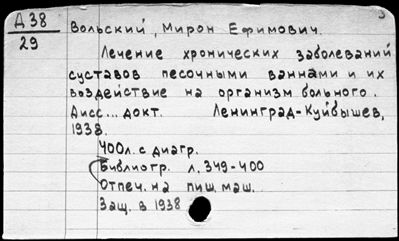 Д38
29
Вольский, Мирон Ефимович.
Лечение хронических заболеваний
суставов песочными ваннами и их
воздействие на организм больного.
Дисс... докт. Ленинград-Куйбышев,
1938.
400л. с диагр.
Библиогр. л. 349-400
Отпеч. на пиш. маш.
Защ. в 1938